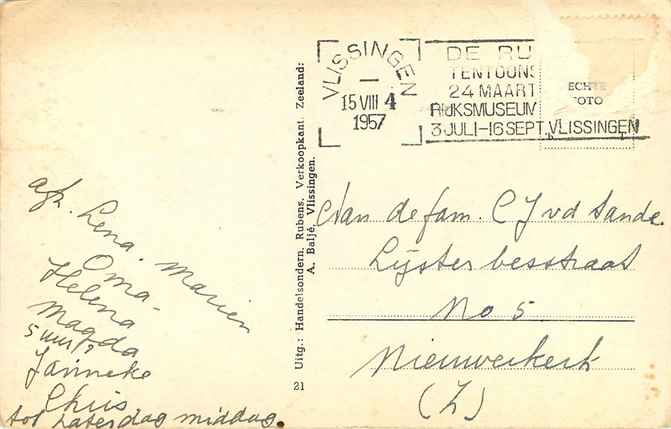 VLISSINGEN
15 VIII 4
1957
DE RU
TENTOONS
24 MAART
RIJKSMUSEUM
3 JULI-16 SEPT. VLISSINGEN
ECHTE
FOTO
Uitg.: Handelsondern. Rubens, Verkoopkant. Zeeland:
A. Baljé, Vlissingen.
21
afz. Lena. Marien
Oma-
Helena
Magda
5 uur?
Janneke
Chris
tot zaterdag middag.
Aan de fam. C J v d Sande.
Lijsterbesstraat
No 5
Nieuwerkerk
(Z)